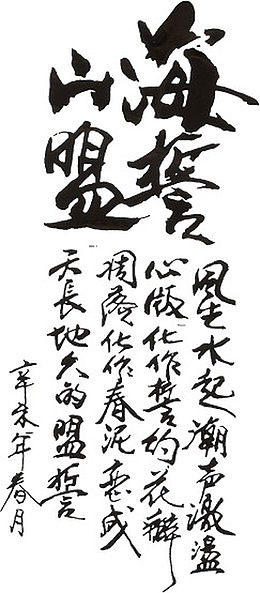 海誓
山盟
風生水起潮声激盪
心版化作誓約花瓣
凋落化作春泥変成
天長地久的盟誓
辛未年春月